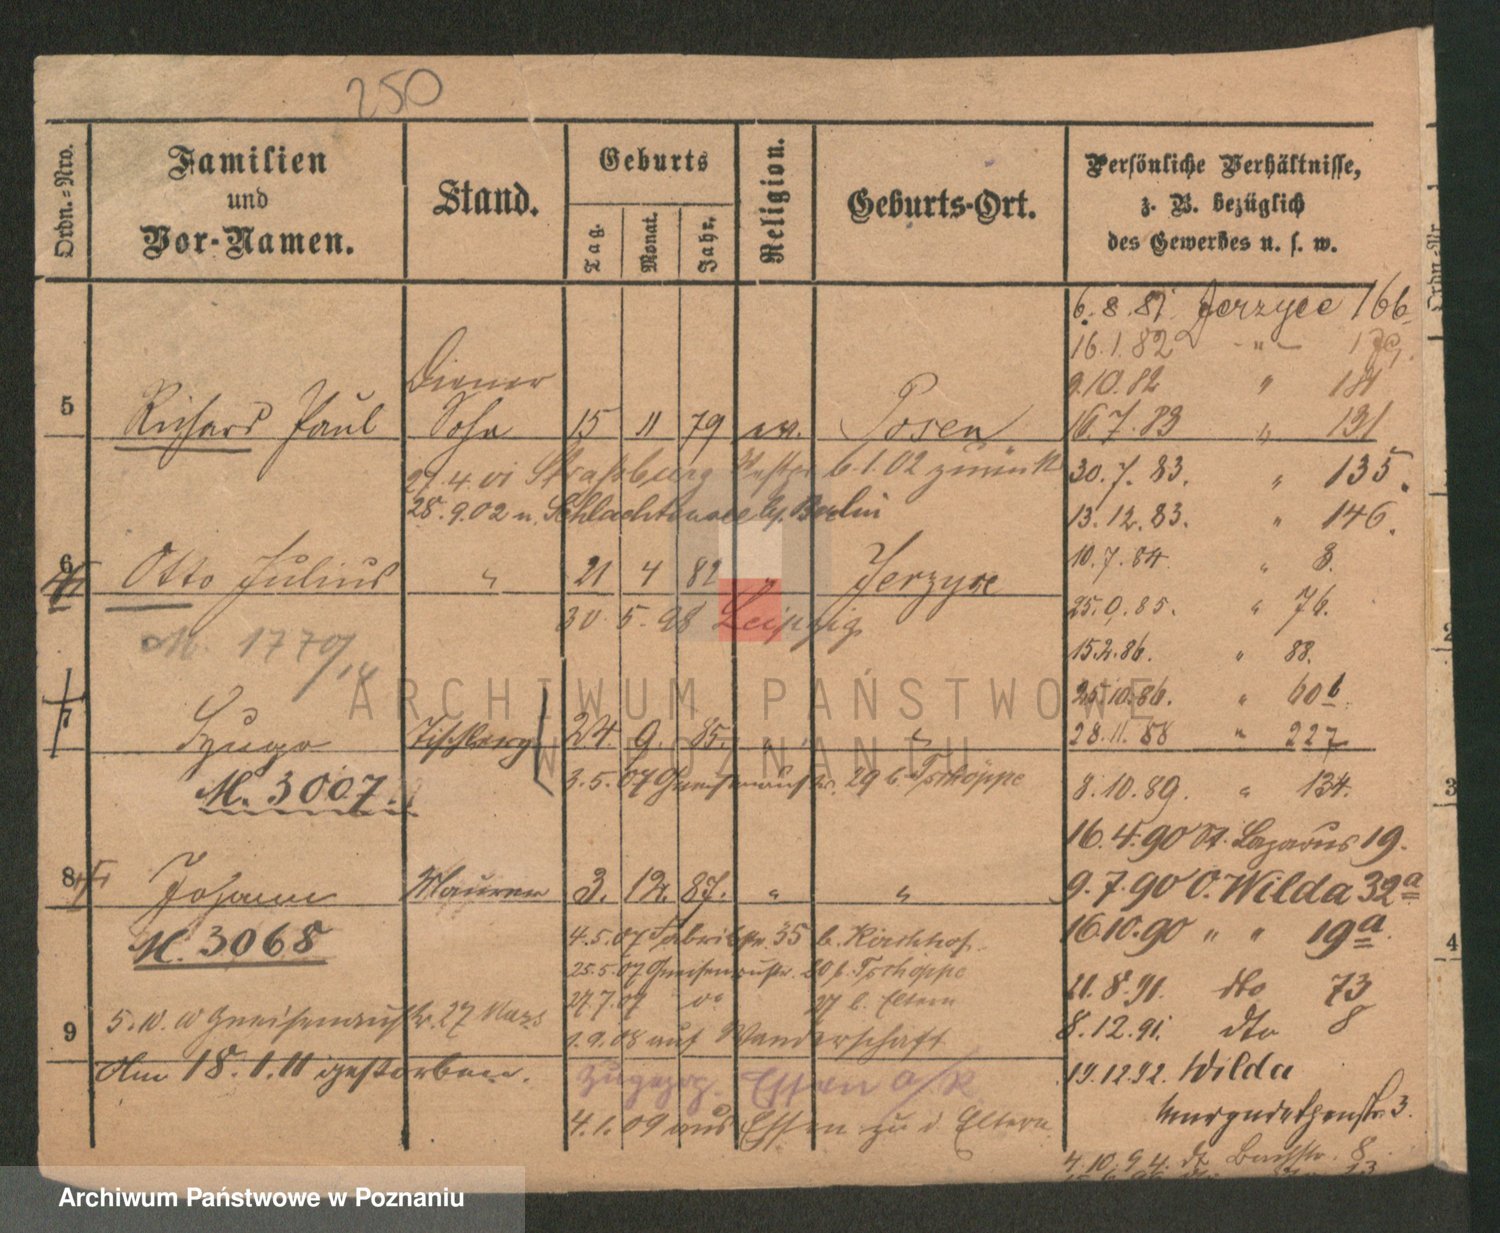 250
Ordn.=Nro.
Familien
und
Vor-Namen.
Stand.
Geburts
Tag.
Monat.
Jahr.
Religion.
Geburts-Ort.
Persönliche Verhältnisse,
z. B. bezüglich
des Gewerbes u. s. w.
6. 8. 81 Jerzyce 166
16. 1. 82 " 
9. 10. 82 " 181
Diener
5 Richard Paul Sohn 15 11 79 ev. Posen
16. 7. 83 " 131
27. 4. 01 Straßburg Westpr 6. 1. 02 zurück
30. 7. 83. " 135.
28. 9. 02 n. Schlachtensee b/ Berlin
13. 12. 83. " 146.
6 Otto Julius " 21 4 82 " Jerzyce
10. 7. 84. " 8.
30. 5. 98 Leipzig
25. 9. 85. " 76.
M. 1770
15. 2. 86. " 88.
25. 10. 86. " 60b
7 Hugo 24. 9. 85. " "
28. 11. 88 " 227
M. 3007.
3. 5. 07 Gneisenaustr. 29 b. Tschöppe
8. 10. 89. " 134.
16. 4. 90 St. Lazarus 19.
8 Johann Maurer 3. 12. 87. " "
9. 7. 90 O. Wilda 32a
M. 3068
4. 5. 07 Fabrikstr. 35 b. Kirchhof
16. 10. 90 " " 19a
25. 5. 07 Gneisenaustr. 20 b. Tschöppe
27. 7. 07 27 b. Eltern
11. 8. 91. dto 73
9
5. 10. 10 Gneisenaustr. 27
1. 9. 08 auf Wanderschaft
8. 12. 91. dto 8
Am 18. 1. 11 gestorben.
zugezog. Essen a/R
19. 12. 92. Wilda
Margarethenstr. 3.
4. 1. 09 aus Essen zu d. Eltern
4. 10. 94. dto Bachstr. 8
13
ARCHIWUM PAŃSTWOWE
W POZNANIU
Archiwum Państwowe w Poznaniu